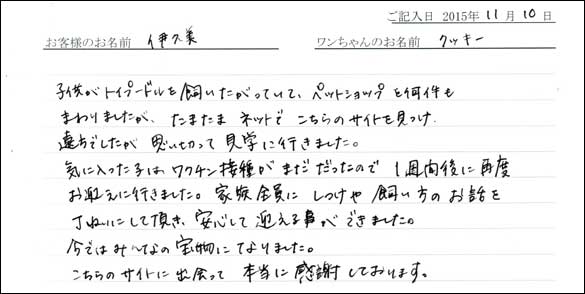 ご記入日 2015年 11月 10日
お客様のお名前 伊久美 ワンちゃんのお名前 クッキー
子供がトイプードルを飼いたがっていて、ペットショップを何件も
まわりましたが、たまたま ネットで こちらのサイトを見つけ
遠方でしたが 思い切って 見学に行きました。
気に入った子は ワクチン接種が まだ だったので 1週間後に再度
お迎えに行きました。家族全員に しつけや 飼い方の お話を
丁ねいにして頂き、安心して 迎える事が できました。
今では みんなの宝物になりました。
こちらのサイトに 出会って 本当に 感謝しております。